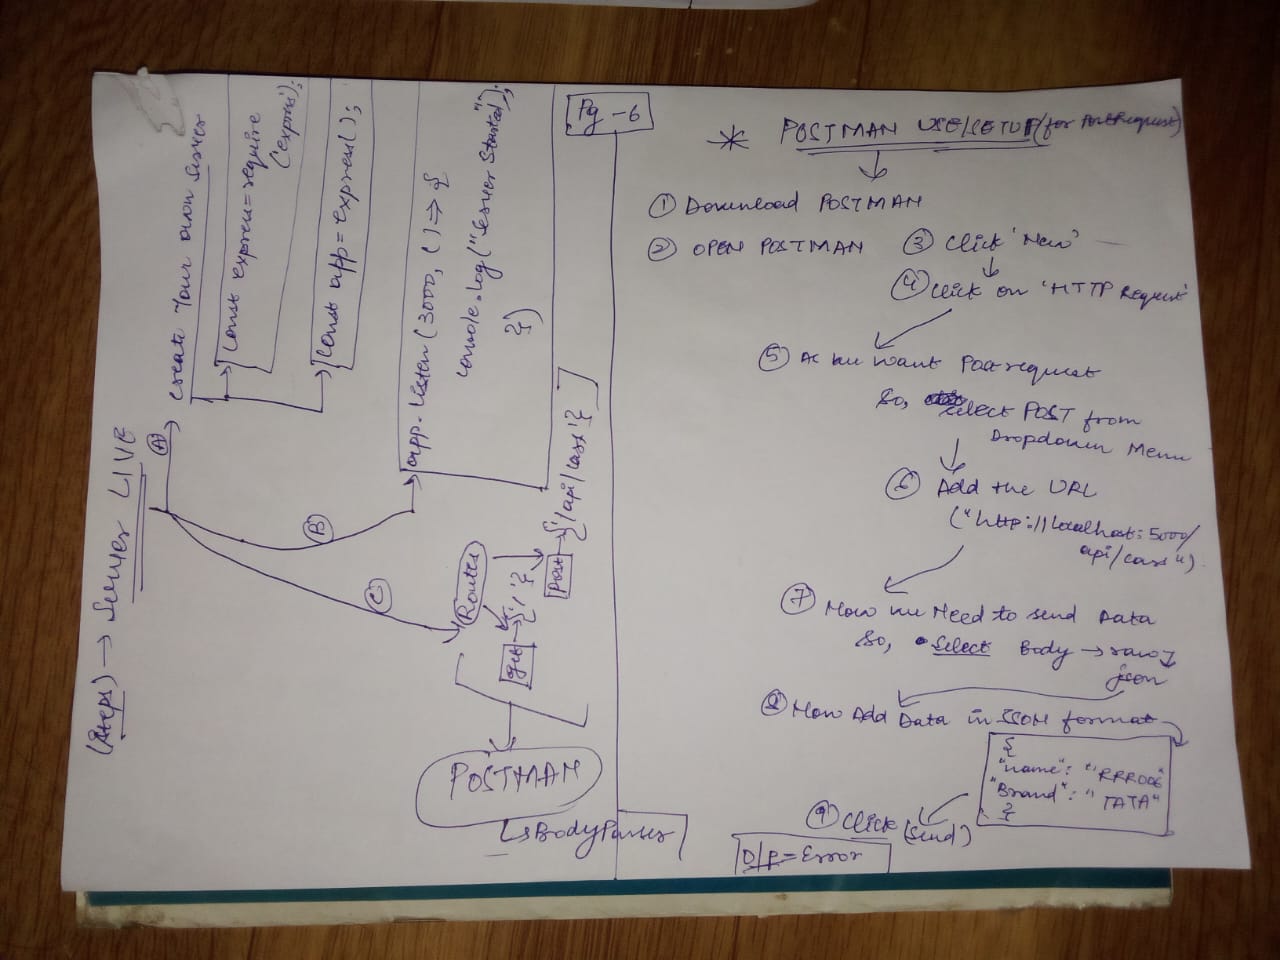 (Steps) → Server LIVE
(A)
Create Your own Server
const express = require
('express');
const app = express();
(B)
app.listen(3000, () => {
console.log("Server Started");
})
(C)
Routes
get → {'/'}
post → {'/api/cars'}
POSTMAN
↳ BodyParser
Pg - 6
* POSTMAN USE/SETUP (for Post Request)
① Download POSTMAN
② OPEN POSTMAN ③ Click 'New'
④ Click on 'HTTP Request'
⑤ As we want Post request
So, select POST from
Dropdown Menu
⑥ Add the URL
("http://localhost:5000/
api/cars")
⑦ Now we Need to send Data
So, • Select Body → raw
json
⑧ Now Add Data in JSON format
{
"name": "RRR006"
"Brand": "TATA"
}
⑨ Click (Send)
O/P = Error